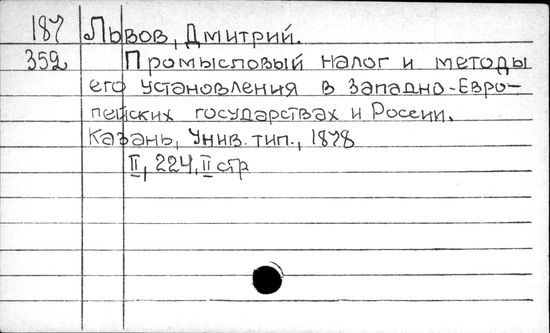 187 Львов, Дмитрий.
352 Промысловый налог и методы
его установления в Западно-Евро-
пейских государствах и России.
Казань, Унив. тип., 1878
II, 224, II стр